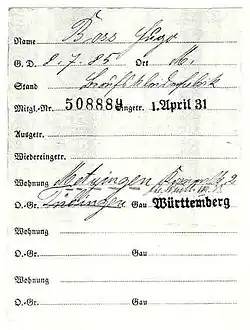 Name Boss Hugo
G. D. 8.7.85 Ort M.
Stand Berufskleiderfabrik
Mitgl.-Nr. 508889 Eingetr. 1. April 31
Ausgetr.
Wiedereingetr.
Wohnung Metzingen
O.-Gr. Tübingen Gau Württemberg
Wohnung
O.-Gr. Gau
Wohnung
O.-Gr. Gau